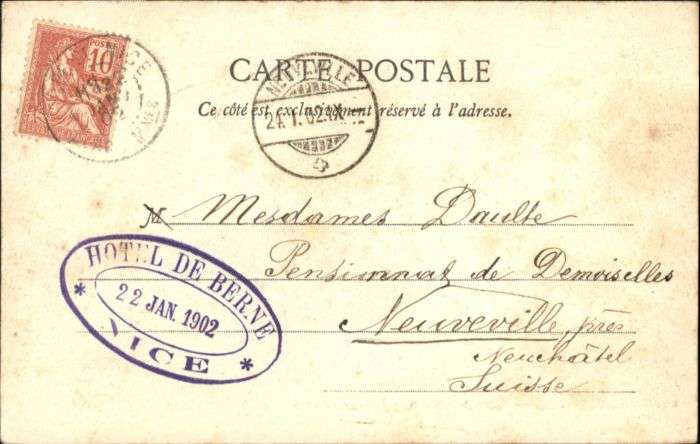 POSTES
10
NICE
CARTE POSTALE
Ce côté est exclusivement réservé à l'adresse.
NEUVEVILLE
M
Mesdames Daulte
Pensionnat de Demoiselles
Neuveville, près
Neuchâtel
Suisse
HOTEL DE BERNE
22 JAN. 1902
* NICE *